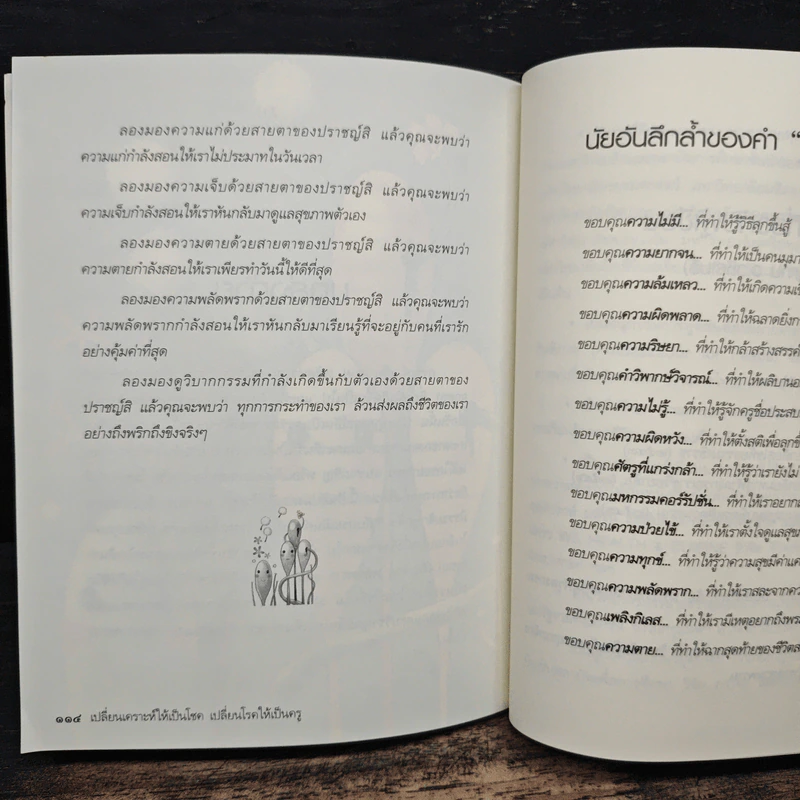 ลองมองความแก่ด้วยสายตาของปราชญ์สิ แล้วคุณจะพบว่า
ความแก่กำลังสอนให้เราไม่ประมาทในวันเวลา
ลองมองความเจ็บด้วยสายตาของปราชญ์สิ แล้วคุณจะพบว่า
ความเจ็บกำลังสอนให้เราหันกลับมาดูแลสุขภาพตัวเอง
ลองมองความตายด้วยสายตาของปราชญ์สิ แล้วคุณจะพบว่า
ความตายกำลังสอนให้เราเพียรทำวันนี้ให้ดีที่สุด
ลองมองความพลัดพรากด้วยสายตาของปราชญ์สิ แล้วคุณจะพบว่า
ความพลัดพรากกำลังสอนให้เราหันกลับมาเรียนรู้ที่จะอยู่กับคนที่เรารัก
อย่างคุ้มค่าที่สุด
ลองมองดูวิบากกรรมที่กำลังเกิดขึ้นกับตัวเองด้วยสายตาของ
ปราชญ์สิ แล้วคุณจะพบว่า ทุกการกระทำของเรา ล้วนส่งผลถึงชีวิตของเรา
อย่างถึงพริกถึงขิงจริงๆ
๑๑๔ เปลี่ยนเคราะห์ให้เป็นโชค เปลี่ยนโรคให้เป็นครู
นัยอันลึกล้ำของคำ "
ขอบคุณความไม่มี... ที่ทำให้รู้วิธีลุกขึ้นสู้
ขอบคุณความยากจน... ที่ทำให้เป็นคนมุมา
ขอบคุณความล้มเหลว... ที่ทำให้เกิดความเ
ขอบคุณความผิดพลาด... ที่ทำให้ฉลาดยิ่งก
ขอบคุณความริษยา... ที่ทำให้กล้าสร้างสรรค์
ขอบคุณคำวิพากษ์วิจารณ์... ที่ทำให้ผลิบานอ
ขอบคุณความไม่รู้... ที่ทำให้รู้จักครูชื่อประสบ
ขอบคุณความผิดหวัง... ที่ทำให้ตั้งสติเพื่อลุกขึ้
ขอบคุณศัตรูที่แกร่งกล้า... ที่ทำให้รู้ว่าเรายังไม่
ขอบคุณมหกรรมคอร์รัปชั่น... ที่ทำให้เราอยาก
ขอบคุณความป่วยไข้... ที่ทำให้เราตั้งใจดูแลสุข
ขอบคุณความทุกข์... ที่ทำให้รู้ว่าความสุขมีค่าแค่
ขอบคุณความพลัดพราก... ที่ทำให้เราสละจากคว
ขอบคุณเพลิงกิเลส... ที่ทำให้เรามีเหตุอยากถึงพระ
ขอบคุณความตาย... ที่ทำให้ฉากสุดท้ายของชีวิตส